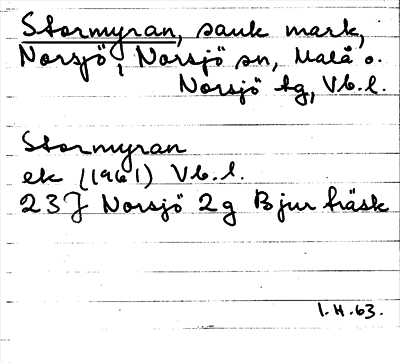 Stormyran, sank mark,
Norsjö, Norsjö sn, Malå o.
Norsjö tg, Vb.l.
Stormyran
ek (1961) Vb.l.
23J Norsjö 2g Bjurträsk
I.H.63.